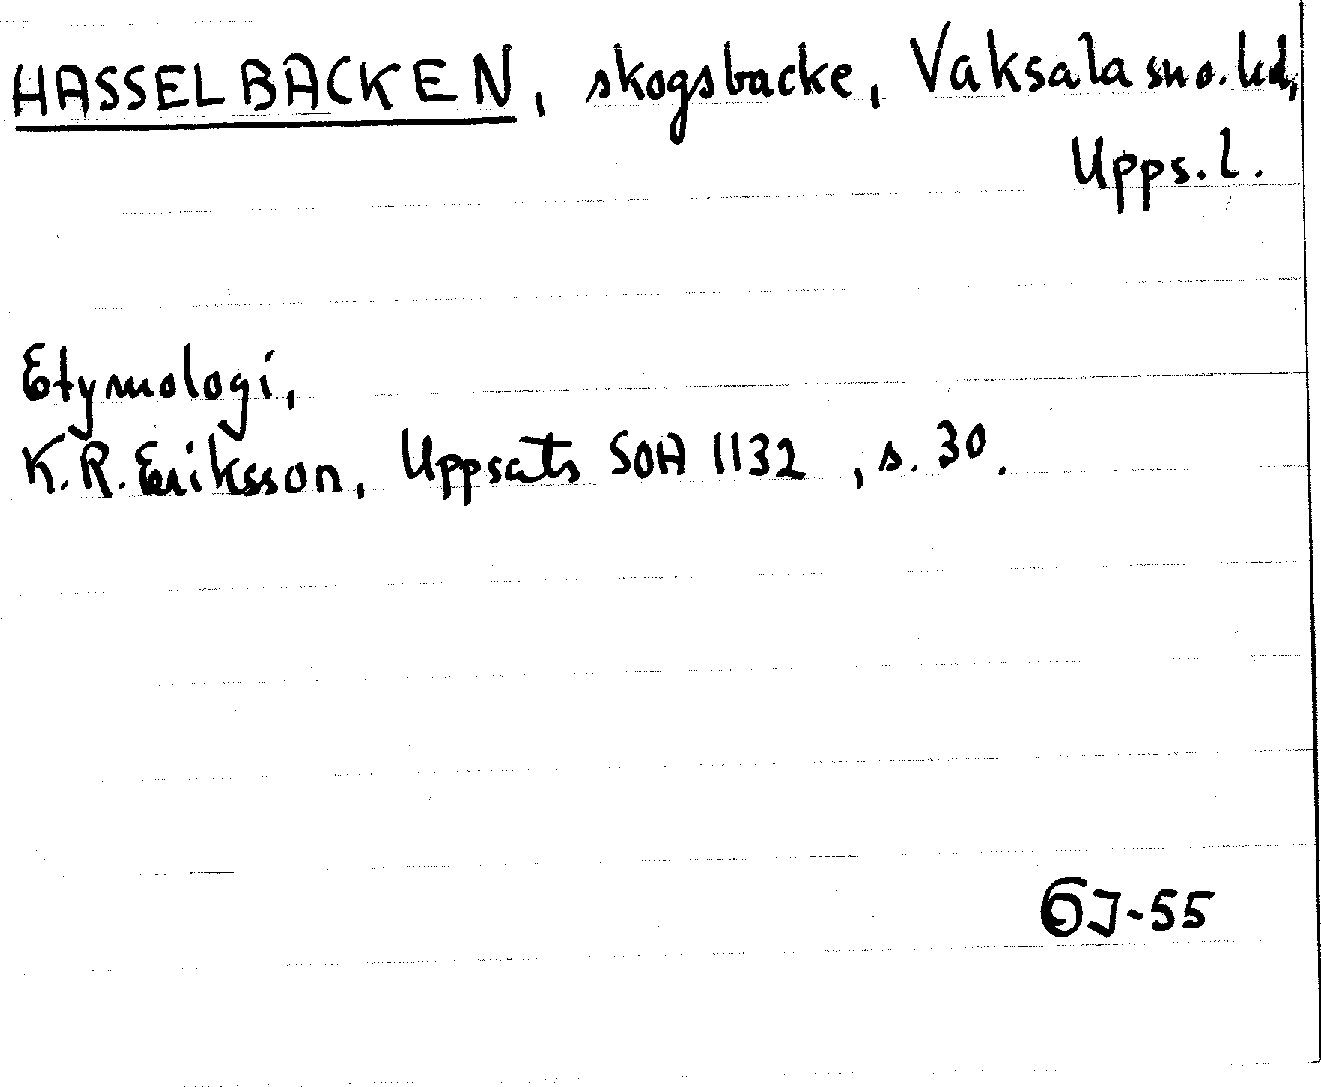 HASSELBACKEN, skogsbacke, Vaksala sn o. hd,
Upps. l.
Etymologi,
K.R. Eriksson, Uppsats SOA 1132, s. 30.
ÖJ-55